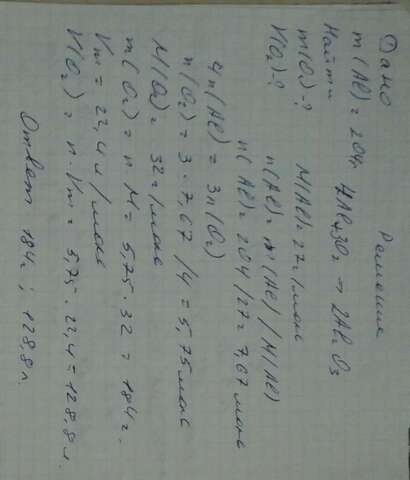 Дано Решение
m(Al) = 204г 4Al+3O₂ → 2Al₂O₃
Найти
m(O₂)-? M(Al)=27г/моль
V(O₂)-? n(Al) = m(Al)/M(Al)
n(Al) = 204/27=7,67 моль
4n(Al) = 3n(O₂)
n(O₂) = 3·7,67/4 = 5,75 моль
M(O₂) = 32г/моль
m(O₂) = n·M = 5,75·32 = 184г.
Vm = 22,4 л/моль
V(O₂) = n·Vm = 5,75·22,4=128,8 л.
Ответ 184г; 128,8 л.